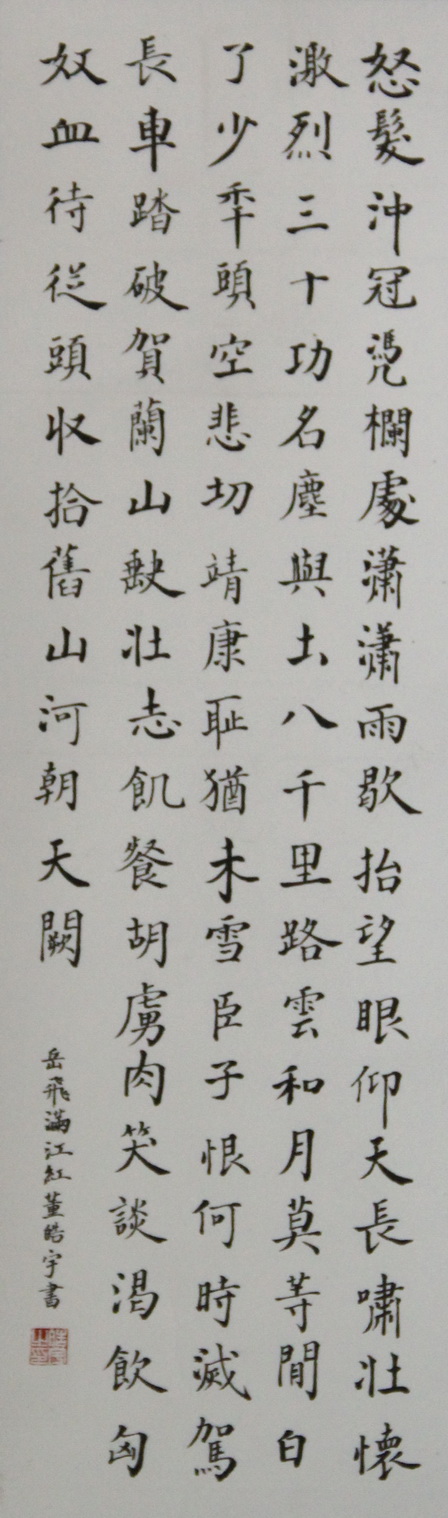 怒髮沖冠凴欄處瀟瀟雨歇抬望眼仰天長嘯壯懷
激烈三十功名塵與土八千里路雲和月莫等閒白
了少秊頭空悲切靖康恥猶未雪臣子恨何時滅駕
長車踏破賀蘭山缺壯志飢餐胡虜肉笑談渴飲匈
奴血待從頭收拾舊山河朝天闕
岳飛滿江紅董皓宇書